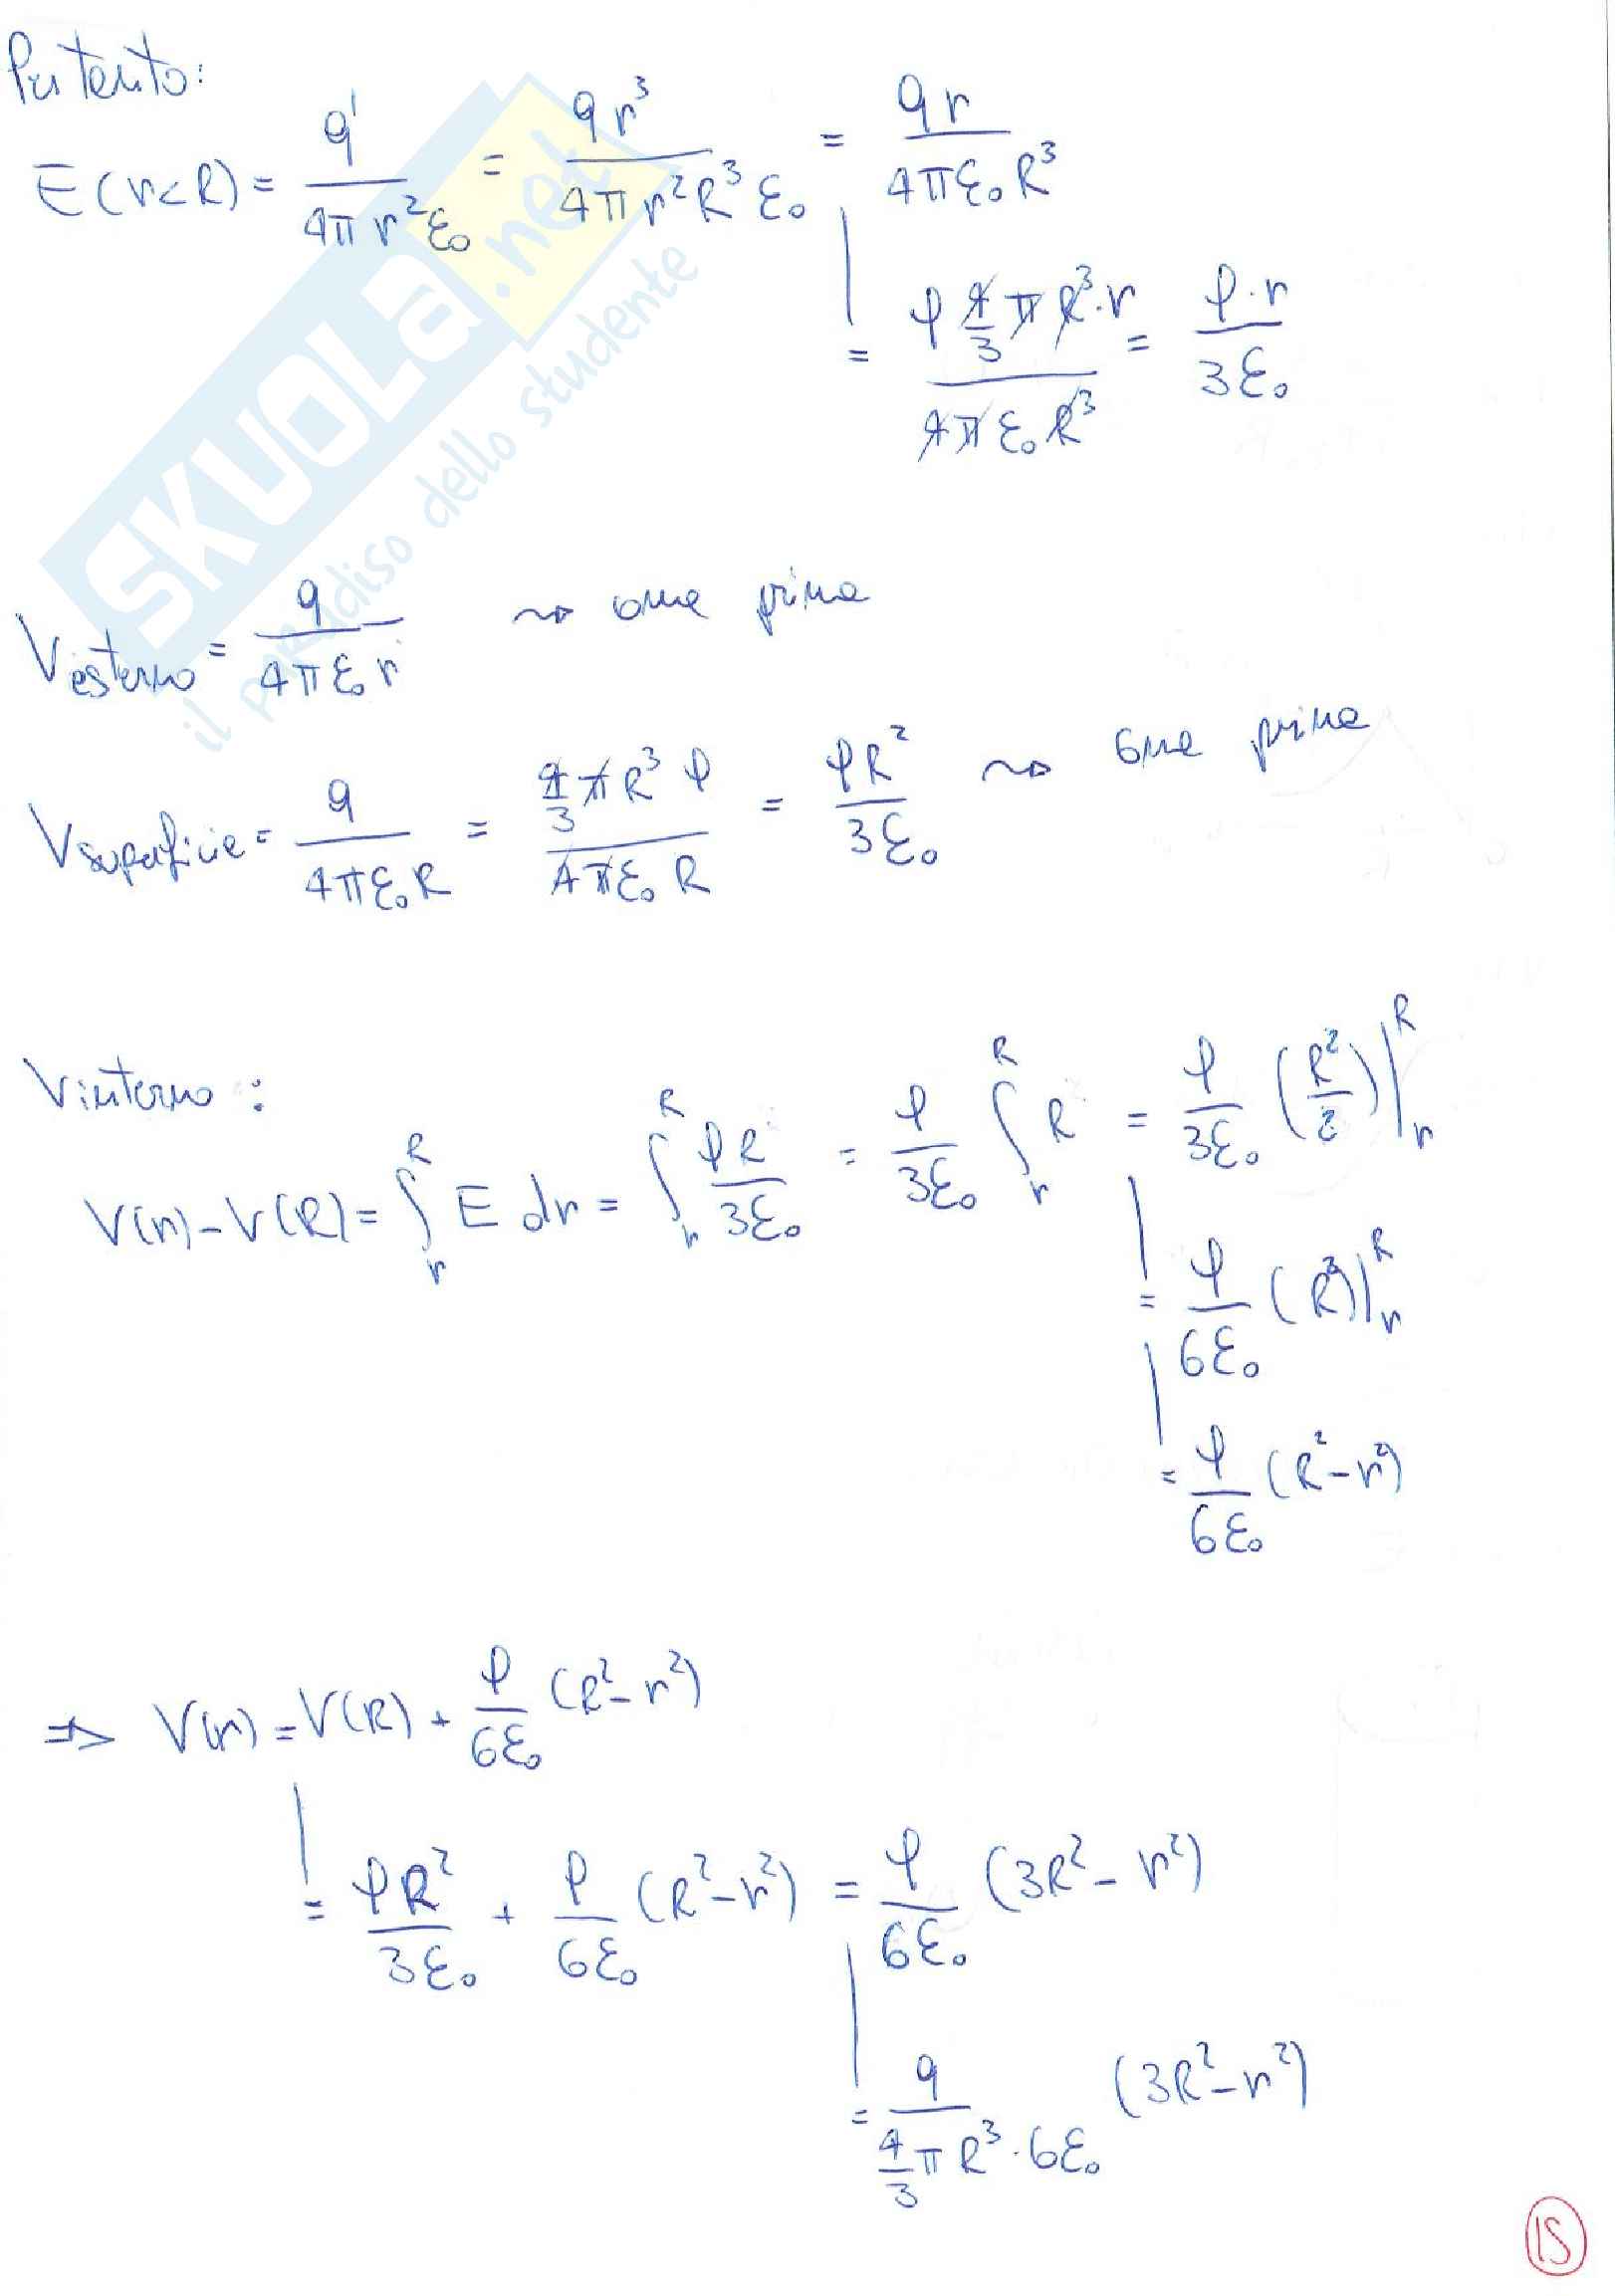 Pertanto:
E(r<R) = q'/(4πr²ε₀) = qr³/(4πr²R³ε₀) = qr/(4πε₀R³)
= ρ 4/3 πR³·r/(4πε₀R³) = ρ·r/(3ε₀)
V esterno = q/(4πε₀r) ~> come prima
V superficie = q/(4πε₀R) = 4/3 πR³ρ/(4πε₀R) = ρR²/(3ε₀) ~> come prima
V interno :
V(r) - V(R) = ∫_r^R E dr = ∫_r^R ρR/(3ε₀) = ρ/(3ε₀) ∫_r^R R = ρ/(3ε₀) (R²/2)|_r^R
= ρ/(6ε₀) (R²)|_r^R
= ρ/(6ε₀) (R²-r²)
=> V(r) = V(R) + ρ/(6ε₀) (R²-r²)
= ρR²/(3ε₀) + ρ/(6ε₀) (R²-r²) = ρ/(6ε₀) (3R²-r²)
= q/(4/3 πR³·6ε₀) (3R²-r²)
15
SKUOLA.net
il paradiso dello studente